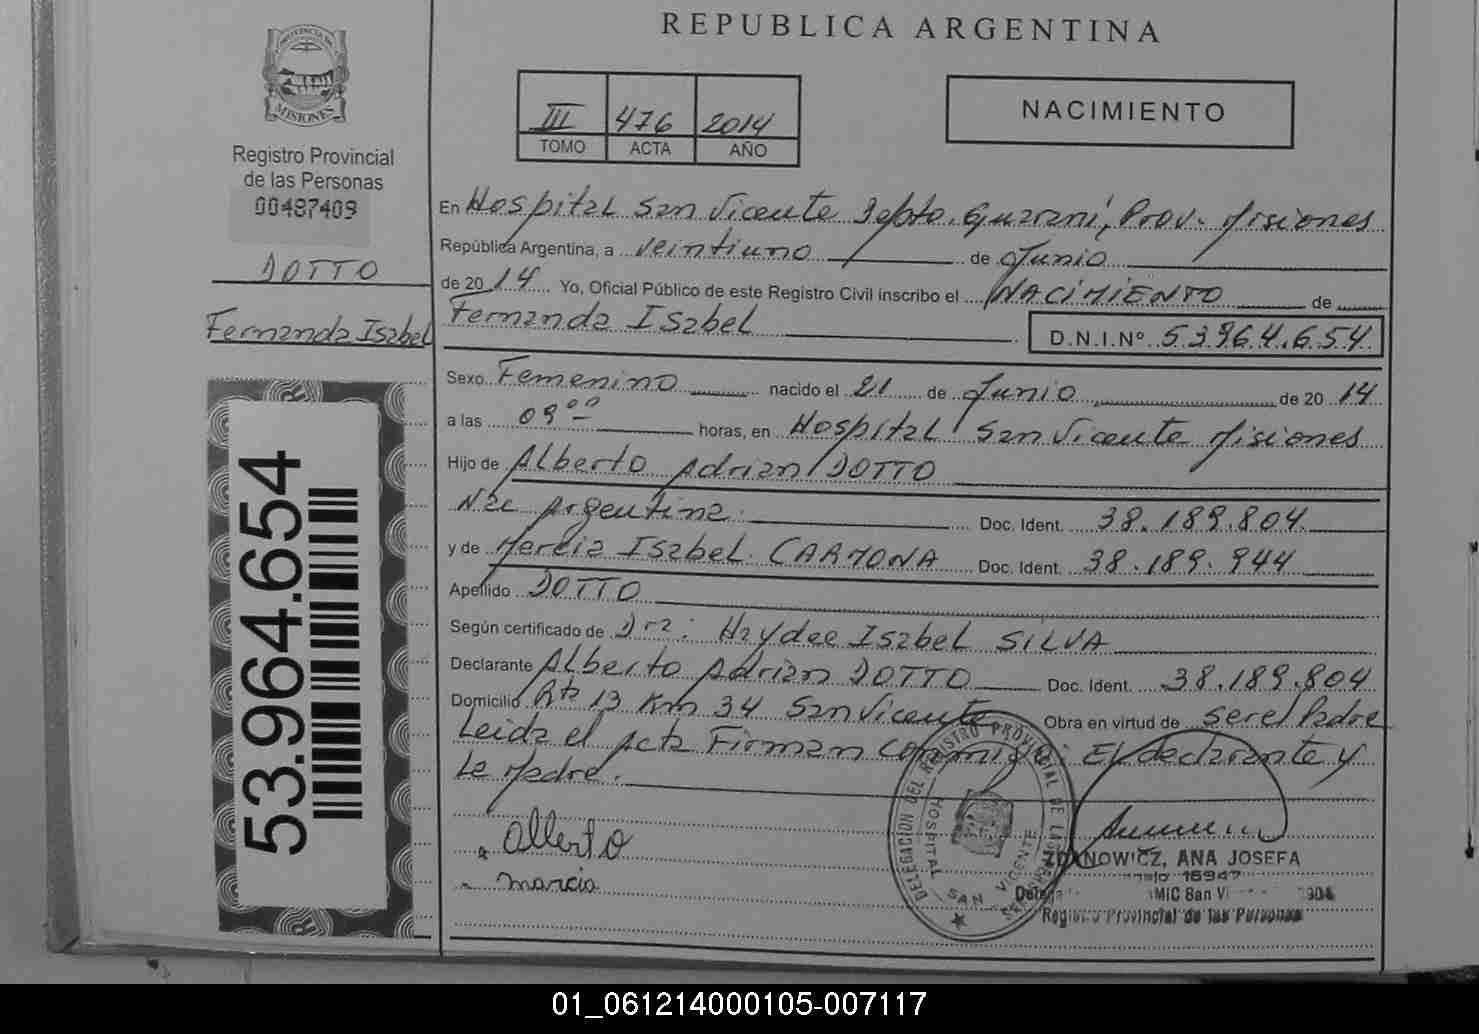 REPUBLICA ARGENTINA
PROVINCIA DE
MISIONES
Registro Provincial
de las Personas
00487409
DOTTO
Fernanda Isabel
53.964.654
III 476 2014
TOMO ACTA AÑO
NACIMIENTO
En Hospital San Vicente Depto. Guarani, Prov. Misiones
República Argentina, a veintiuno de Junio
de 2014 Yo, Oficial Público de este Registro Civil inscribo el NACIMIENTO de
Fernanda Isabel D.N.I.Nº 53964.654
Sexo Femenino nacido el 21 de Junio de 20 14
a las 09 00 horas, en Hospital San Vicente Misiones
Hijo de Alberto Adrian DOTTO
Nac Argentina. Doc. Ident. 38.189.804
y de Marcia Isabel CARMONA Doc. Ident. 38.189.944
Apellido DOTTO
Según certificado de Dra: Haydee Isabel SILVA
Declarante Alberto Adrian DOTTO Doc. Ident. 38.189.804
Domicilio Rta 13 Km 34 San Vicente Obra en virtud de ser el Padre
Leida el Acta Firman conmigo: El declarante y
La Madre.
Alberto
marcia
DELEGACION DEL REGISTRO PROVINCIAL DE LAS PERSONAS
HOSPITAL SAN VICENTE
ZDANOWICZ, ANA JOSEFA
16947
MIC San Vi
Registro Provincial de las Personas
01_061214000105-007117